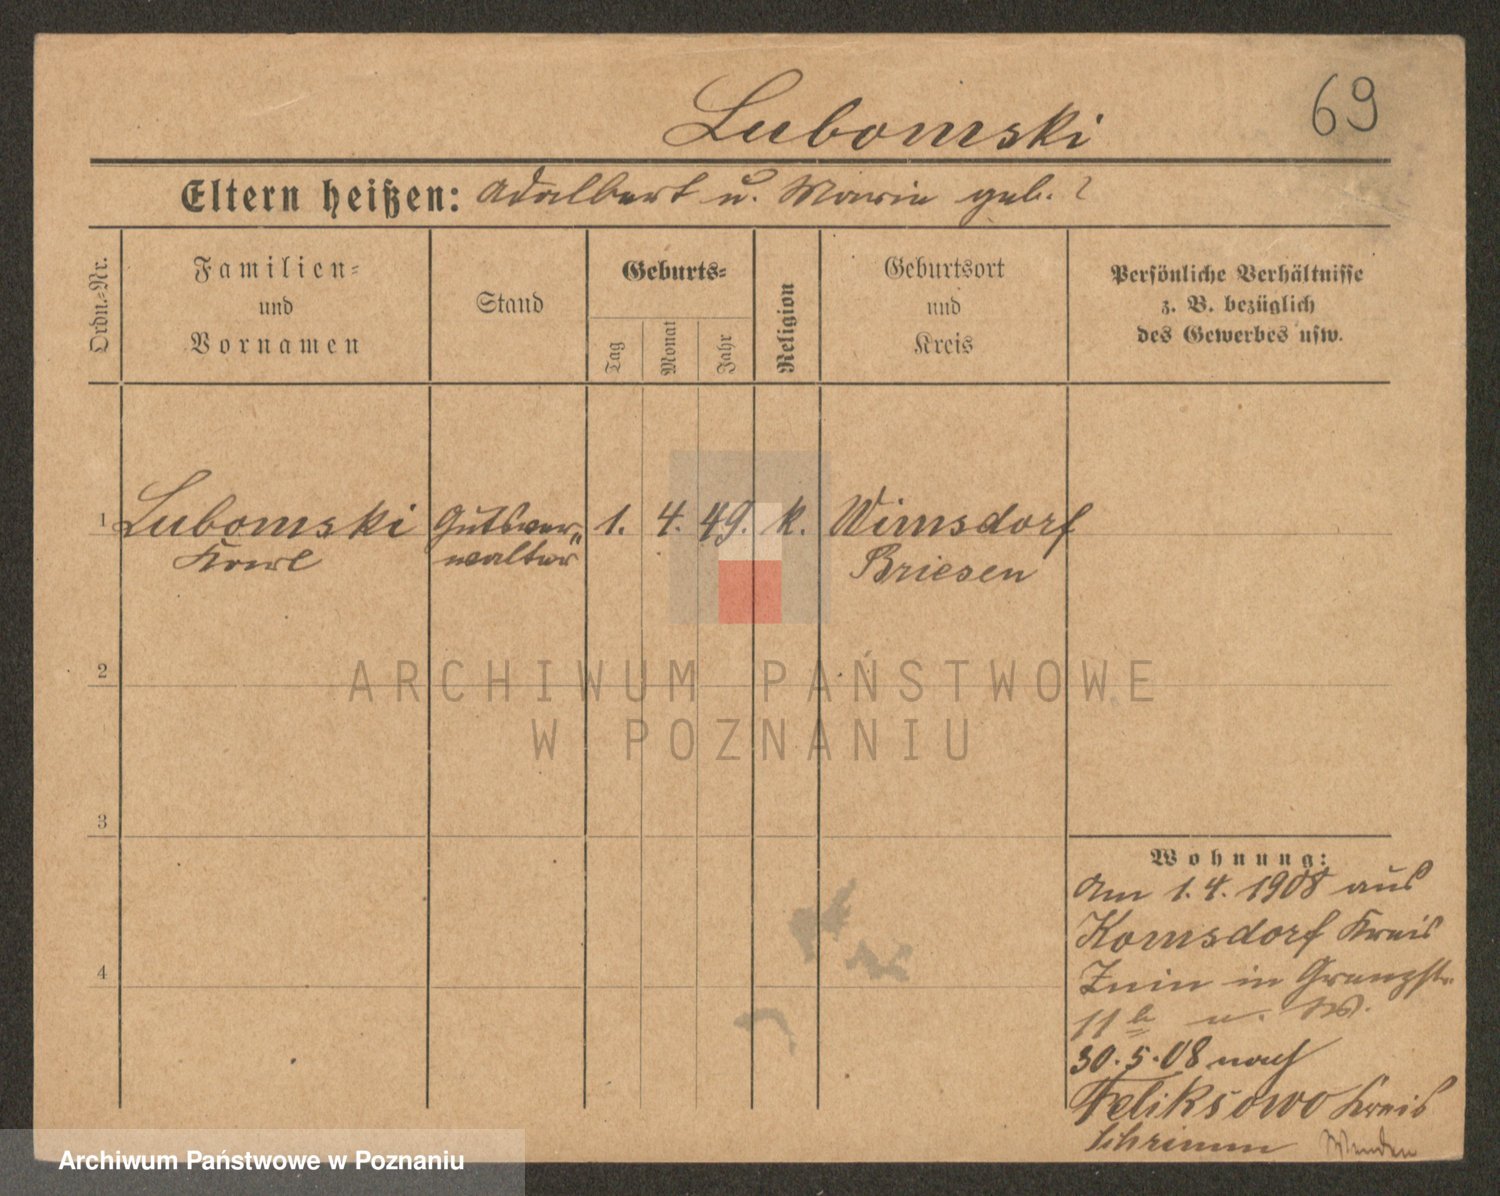 Lubomski
69
Eltern heißen: Adalbert u. Marie geb. ?
Ordn.-Nr.
Familien-
und
Vornamen
Stand
Geburts-
Tag
Monat
Jahr
Religion
Geburtsort
und
Kreis
Persönliche Verhältnisse
z. B. bezüglich
des Gewerbes usw.
1 Lubomski Gutsver- 1. 4. 49. k. Wimsdorf
Karl walter Briesen
ARCHIWUM PAŃSTWOWE
W POZNANIU
2
3
4
Wohnung:
Am 1.4.1908 aus
Komsdorf Kreis
Znin in Grenzstr.
11 b u.
30.5.08 nach
Feliksowo Kreis
Schrimm Wenden
Archiwum Państwowe w Poznaniu